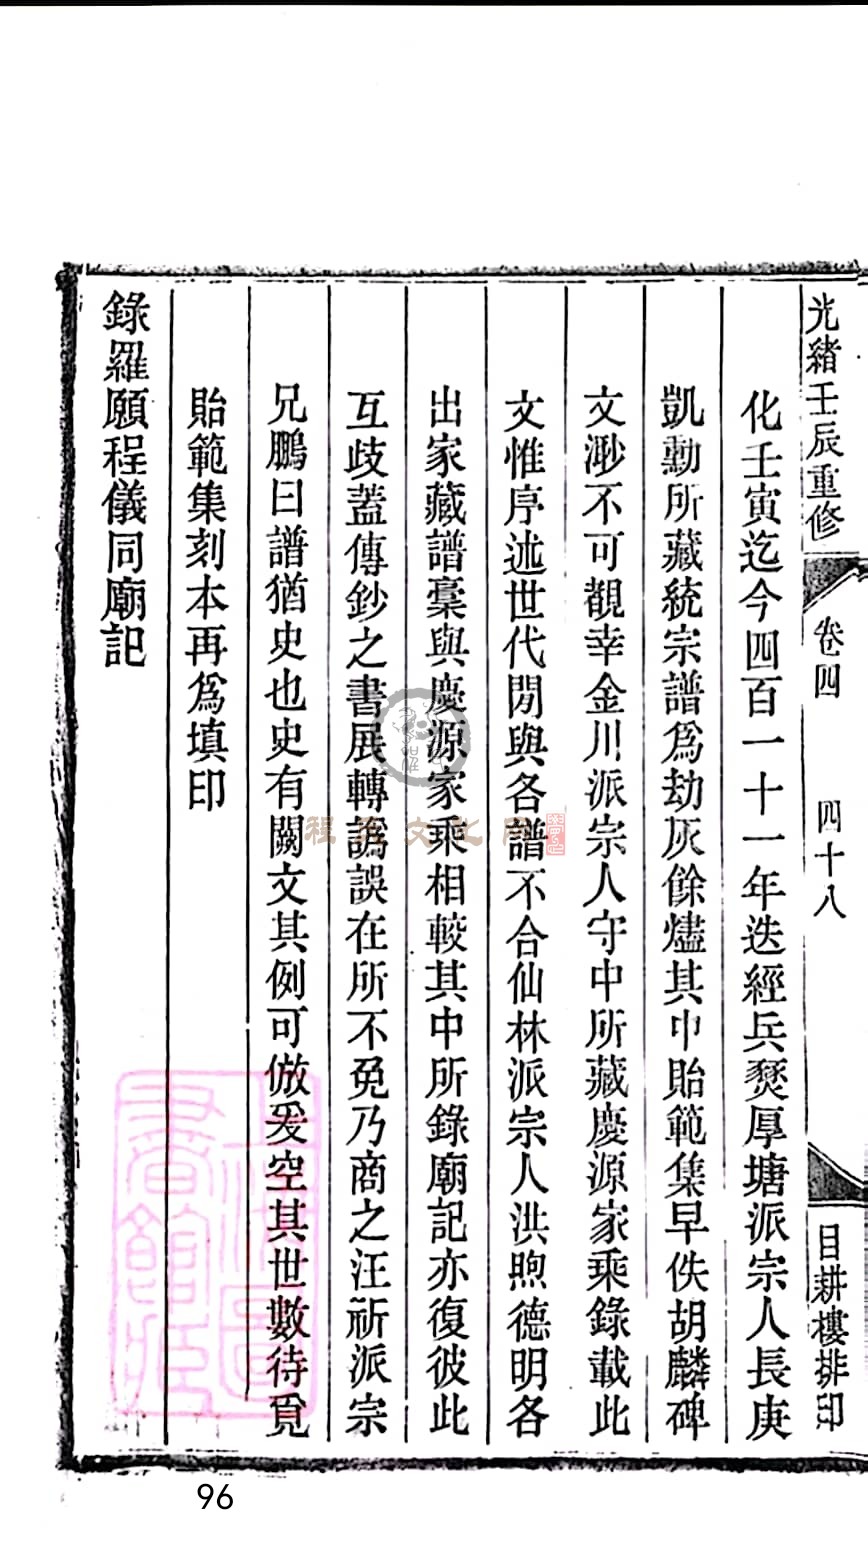 光緒壬辰重修 卷四 四十八 目耕樓排印
化壬寅迄今四百一十一年迭經兵燹厚塘派宗人長庚
凱勳所藏統宗譜爲劫灰餘燼其中貽範集早佚胡麟碑
文渺不可覩幸金川派宗人守中所藏慶源家乘錄載此
文惟序述世代閒與各譜不合仙林派宗人洪煦德明各
出家藏譜稾與慶源家乘相較其中所錄廟記亦復彼此
互歧蓋傳鈔之書展轉譌誤在所不免乃商之汪祈派宗
兄鵬曰譜猶史也史有闕文其例可倣爰空其世數待覓
貽範集刻本再爲填印
錄羅願程儀同廟記
程氏文化网
上海圖書館藏
96